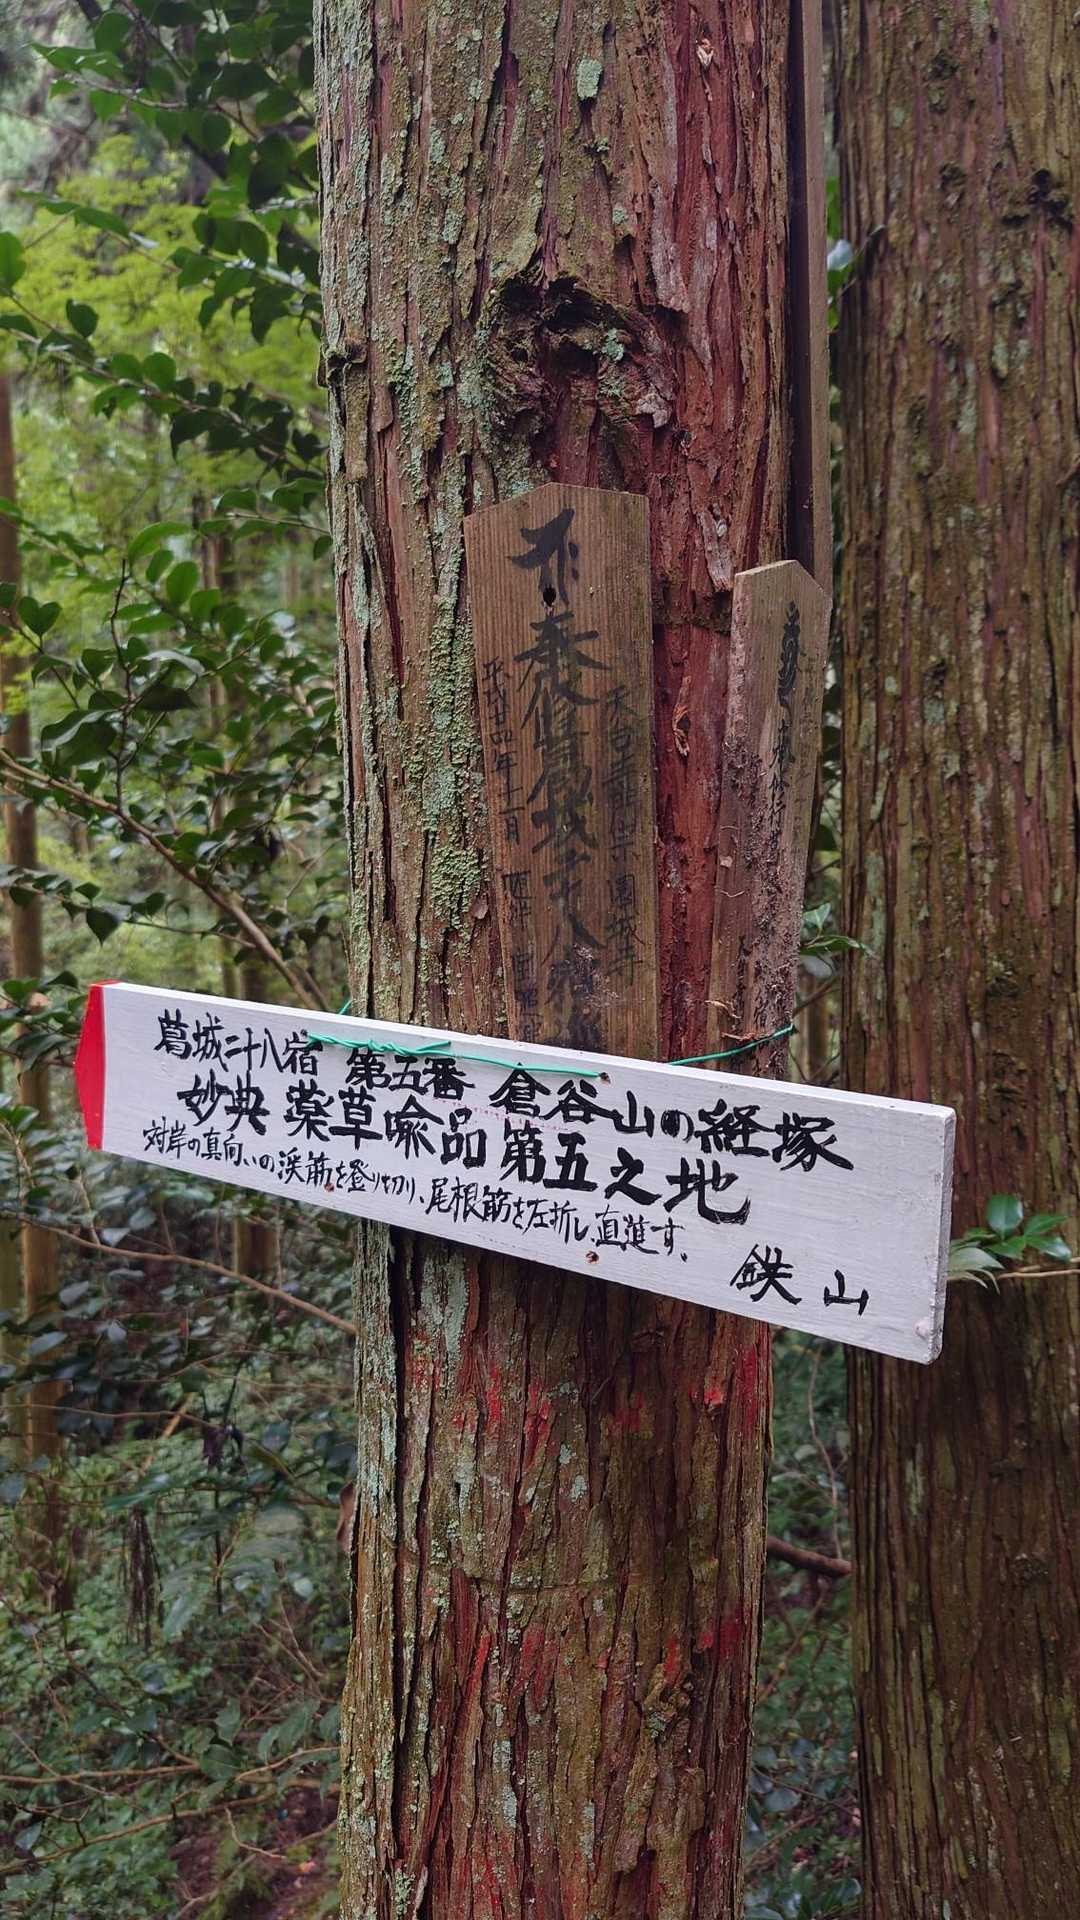 奉修葛城二十八宿
天台寺門宗 園城寺
平成廿四年十一月
葛城二十八宿 第五番 倉谷山の経塚
妙典 薬草喩品 第五之地
対岸の真向いの渓筋を登り切り、尾根筋を左折し、直進す。
鉄山